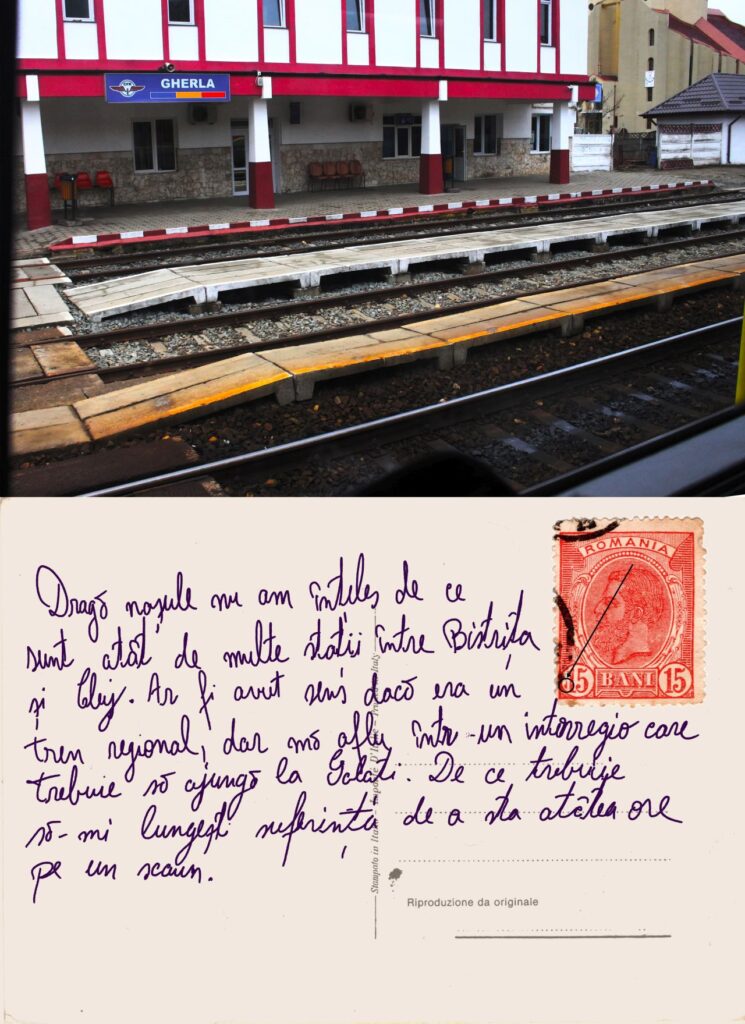 GHERLA
ROMANIA
15 BANI 15
Dragă nașule nu am înțeles de ce
sunt atât de multe stații între Bistrița
și Cluj. Ar fi avut sens dacă era un
tren regional, dar mă aflu într-un interregio care
trebuie să ajungă la Galați. De ce trebuie
să-mi lungești suferința de a sta atâtea ore
pe un scaun.
Stampato in Italia - Importé D'Italie - Italy
Riproduzione da originale